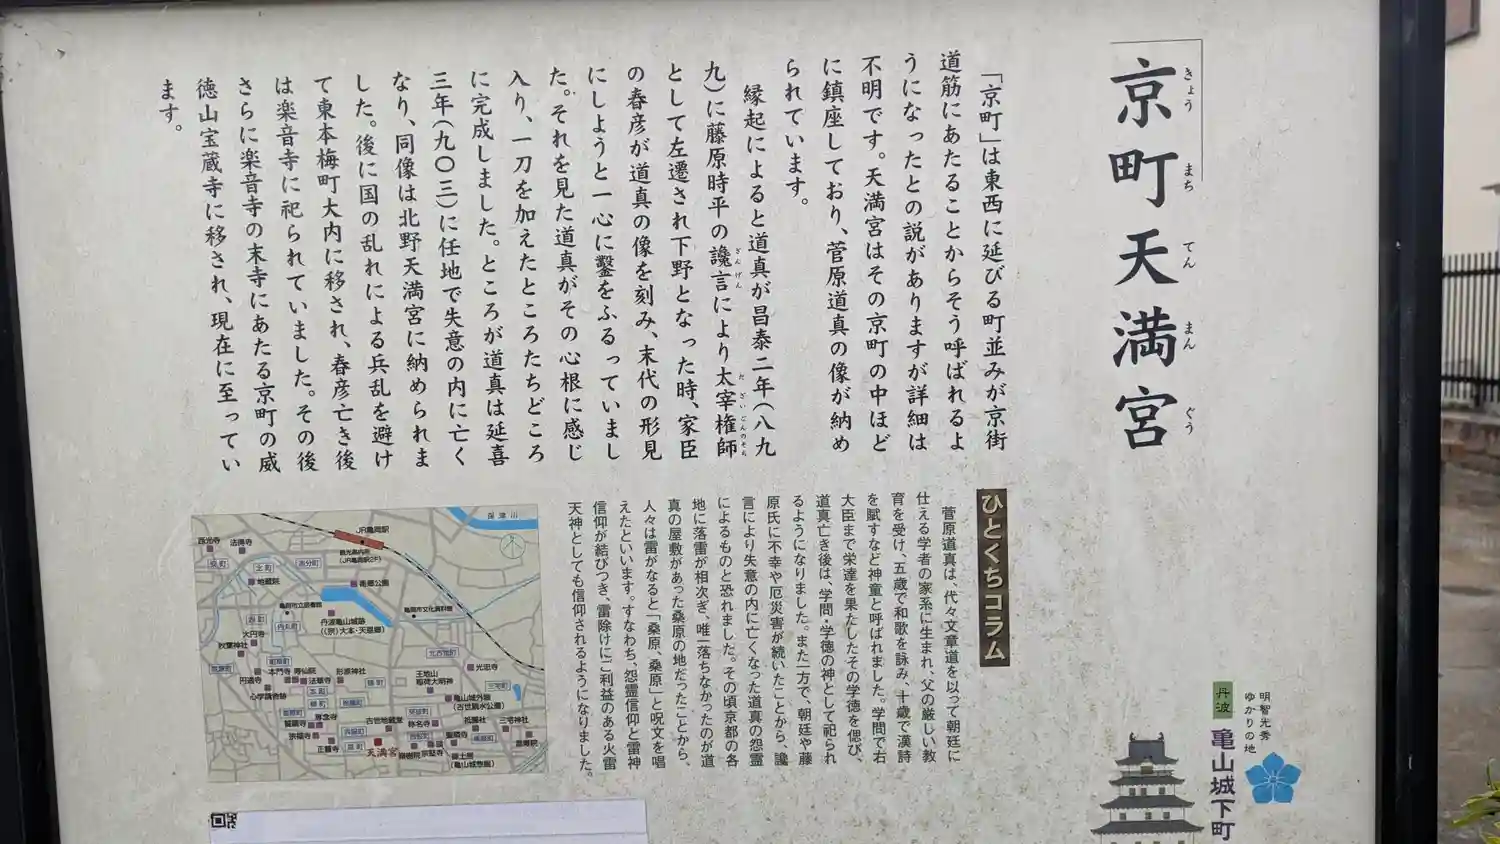 京町天満宮
きょうまちてんまんぐう
「京町」は東西に延びる町並みが京街
道筋にあたることからそう呼ばれるよ
うになったとの説がありますが詳細は
不明です。天満宮はその京町の中ほど
に鎮座しており、菅原道真の像が納め
られています。
縁起によると道真が昌泰二年(八九
九)に藤原時平の讒言により太宰権師
ざんげん
だざいごんのそち
として左遷され下野となった時、家臣
の春彦が道真の像を刻み、末代の形見
にしようと一心に鑿をふるっていまし
た。それを見た道真がその心根に感じ
入り、一刀を加えたところたちどころ
に完成しました。ところが道真は延喜
三年(九〇三)に任地で失意の内に亡く
なり、同像は北野天満宮に納められま
した。後に国の乱れによる兵乱を避け
て東本梅町大内に移され、春彦亡き後
は楽音寺に祀られていました。その後
さらに楽音寺の末寺にあたる京町の威
徳山宝蔵寺に移され、現在に至ってい
ます。
ひとくちコラム
菅原道真は、代々文章道を以って朝廷に
仕える学者の家系に生まれ、父の厳しい教
育を受け、五歳で和歌を詠み、十歳で漢詩
を賦すなど神童と呼ばれました。学問で右
大臣まで栄達を果たしたその学徳を偲び、
道真亡き後は、学問・学徳の神として祀られ
るようになりました。また一方で、朝廷や藤
原氏に不幸や厄災害が続いたことから、讒
言により失意の内に亡くなった道真の怨霊
によるものと恐れました。その頃京都の各
地に落雷が相次ぎ、唯一落ちなかったのが道
真の屋敷があった桑原の地だったことから、
人々は雷がなると「桑原、桑原」と呪文を唱
えたといいます。すなわち、怨霊信仰と雷神
信仰が結びつき、雷除けにご利益のある火雷
天神としても信仰されるようになりました。
保津川
JR亀岡駅
観光案内所
(JR亀岡駅2F)
西光寺
法徳寺
北町
地蔵院
南郷公園
亀岡市立図書館
亀岡市文化資料館
丹波亀山城跡
((宗)大本・天恩郷)
西町
内丸町
大円寺
秋葉神社
本門寺
寿仙院
形原神社
円通寺
法華寺
心学講舎跡
本町
柳町
王地山
稲荷大明神
光忠寺
北古世町
三宅町
亀山城外堀
(古世親水公園)
誓願寺
専念寺
宗福寺
古世地蔵堂
称名寺
祗園社
三宅神社
正麟寺
天満宮
聖隣寺
宗堅寺
(亀山城惣堀)
明智光秀
ゆかりの地
丹波
亀山城下町